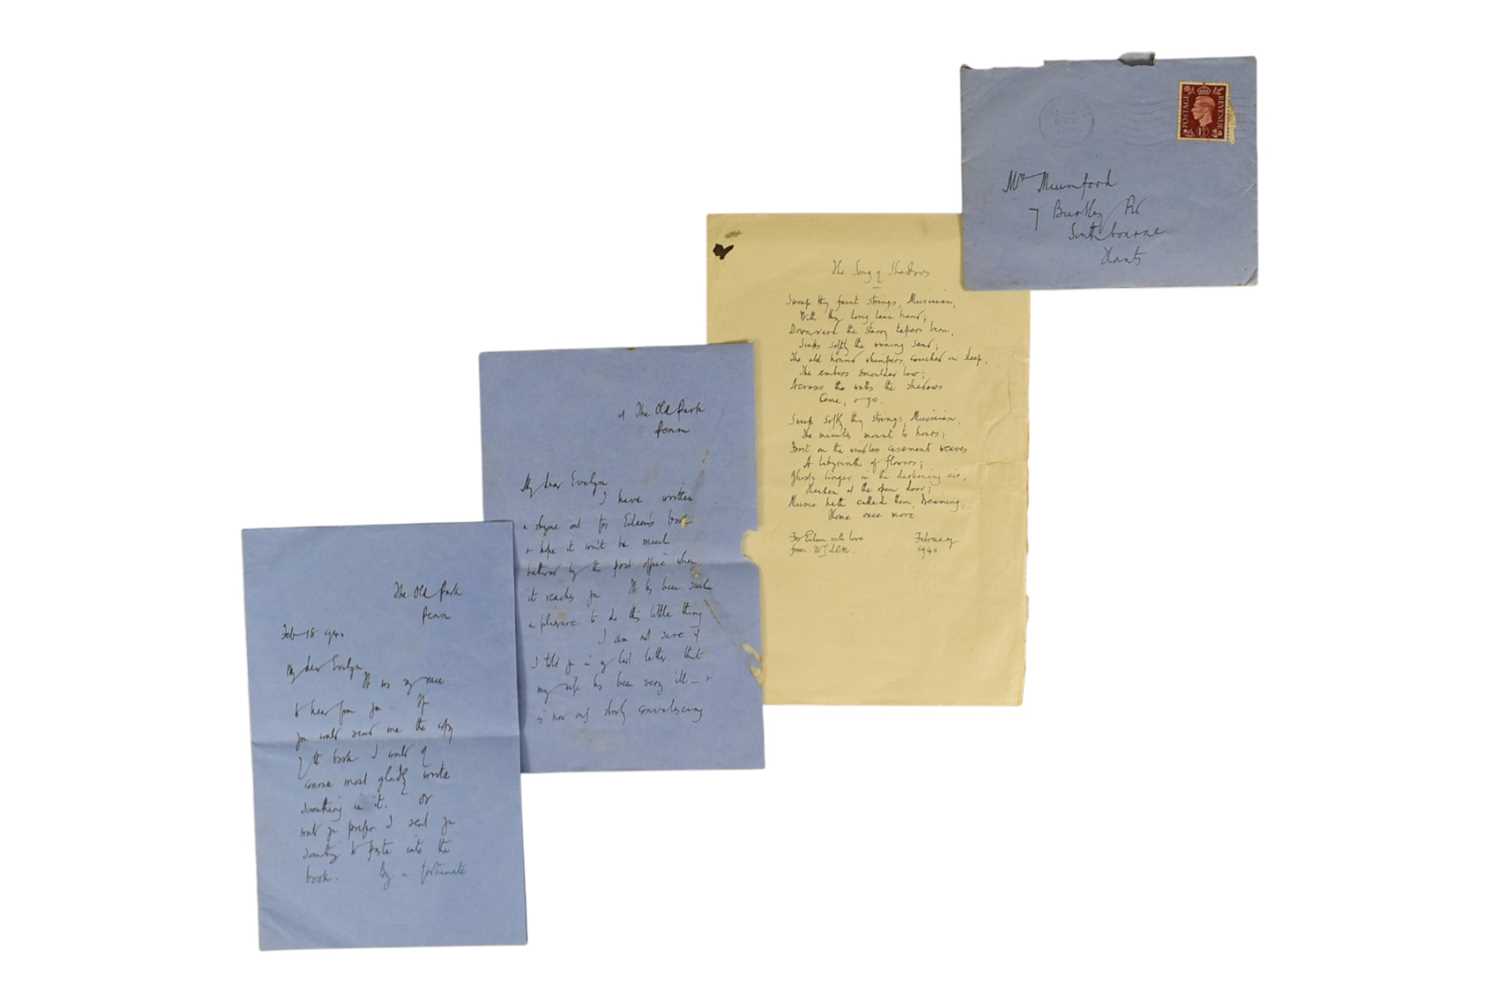 The Old Park
Penn
Feb 18 1940
My dear Evelyn,
It was very nice
to hear from you. If
you would send me the copy
of the book I would of
course most gladly write
something in it. Or
would you prefer I send you
something to paste into the
book. By a fortunate
The Old Park
Penn
My dear Evelyn
I have written
a rhyme out for Eileen's book
& hope it won't be much
battered by the post office when
it reaches you. It has been such
a pleasure to do this little thing
I am not sure if
I told you in my last letter that
my wife has been very ill — &
is now only slowly convalescing
The Song of Shadows
Sweep thy faint strings, Musician,
With thy long lean hand;
Downward the starry tapers burn,
Sinks softly the waning sand;
The old hound whimpers couched in sleep,
The embers smoulder low;
Across the walls the shadows
Come, & go.
Sweep softly thy strings, Musician,
The minutes mount to hours;
Frost on the windless casement weaves
A labyrinth of flowers;
Ghosts linger in the darkening air,
Hearken at the open door;
Music hath called them, dreaming,
Home once more
For Eileen with love
from W J de la M.
February
1940
POSTAGE
REVENUE
1½D
Mrs Mumford
7 Burtley Rd
Southbourne
Hants